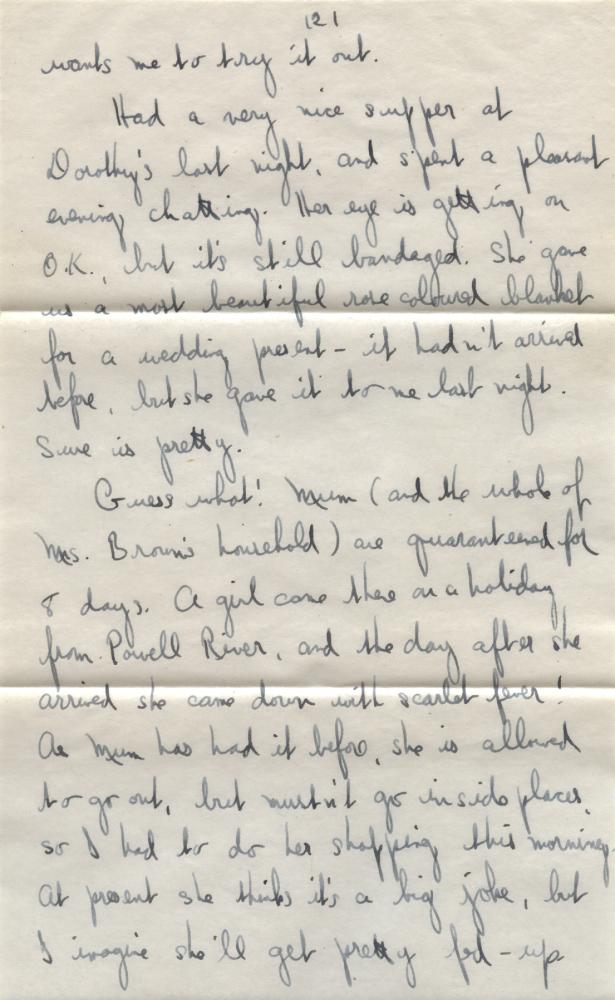 (2)
wants me to try it out.
Had a very nice supper at
Dorothy's last night, and spent a pleasant
evening chatting. Her eye is getting on
O.K., but it's still bandaged. She gave
us a most beautiful rose coloured blanket
for a wedding present - it hadn't arrived
before, but she gave it to me last night.
Sure is pretty.
Guess what! Mum (and the whole of
Mrs. Brown's household) are quaranteened for
8 days. A girl came there on a holiday
from Powell River, and the day after she
arrived she came down with scarlet fever!
As Mum has had it before, she is allowed
to go out, but mustn't go inside places,
so I had to do her shopping this morning.
At present she thinks it's a big joke, but
I imagine she'll get pretty fed-up